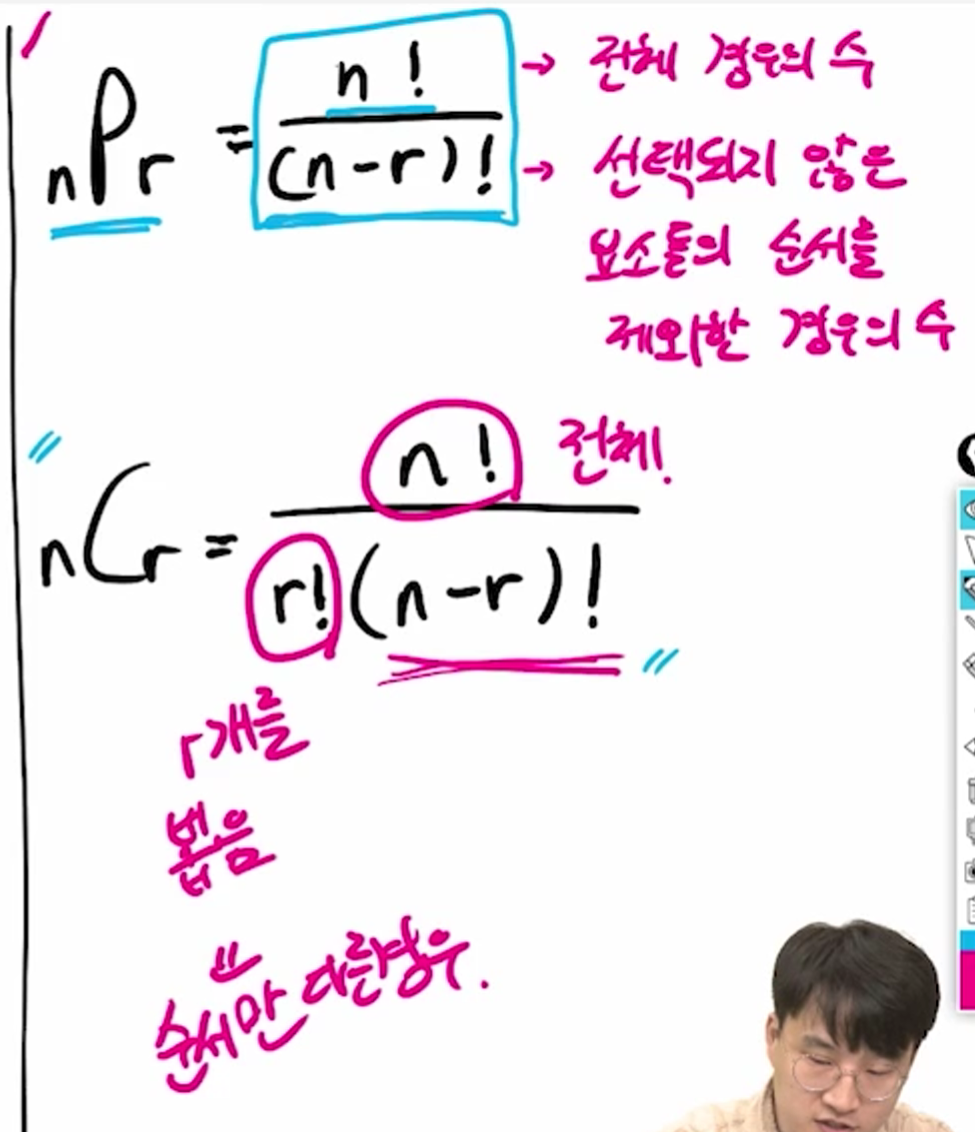 nPr = n! / (n-r)! → 전체 경우의 수
→ 선택되지 않은
요소들의 순서를
제외한 경우의 수
nCr = n! / r!(n-r)! 전체!
r개를
뽑음
=
순서만 다른경우.